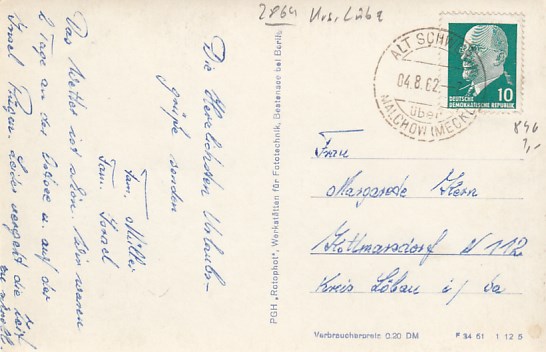 2864 Krs. Lübz
Die Herzlichsten Urlaubs-
grüße senden
Fam. Müller
Fam. Israel
Das Wetter ist schön. Wir waren
2 Tage an der Ostsee u. auf der
Insel Rügen. Leider vergeht die Zeit
zu schnell.
PGH „Rotophot", Werkstätten für Fototechnik, Bestensee bei Berlin
ALT SCHW
04.8.62
über
MALCHOW (MECKL
10
DEUTSCHE
DEMOKRATISCHE REPUBLIK
846
1,-
Frau
Margarete Kern
Kottmarsdorf N 112
Kreis Löbau i/ Sa
Verbraucherpreis 0.20 DM
F 34 61 1 12 5